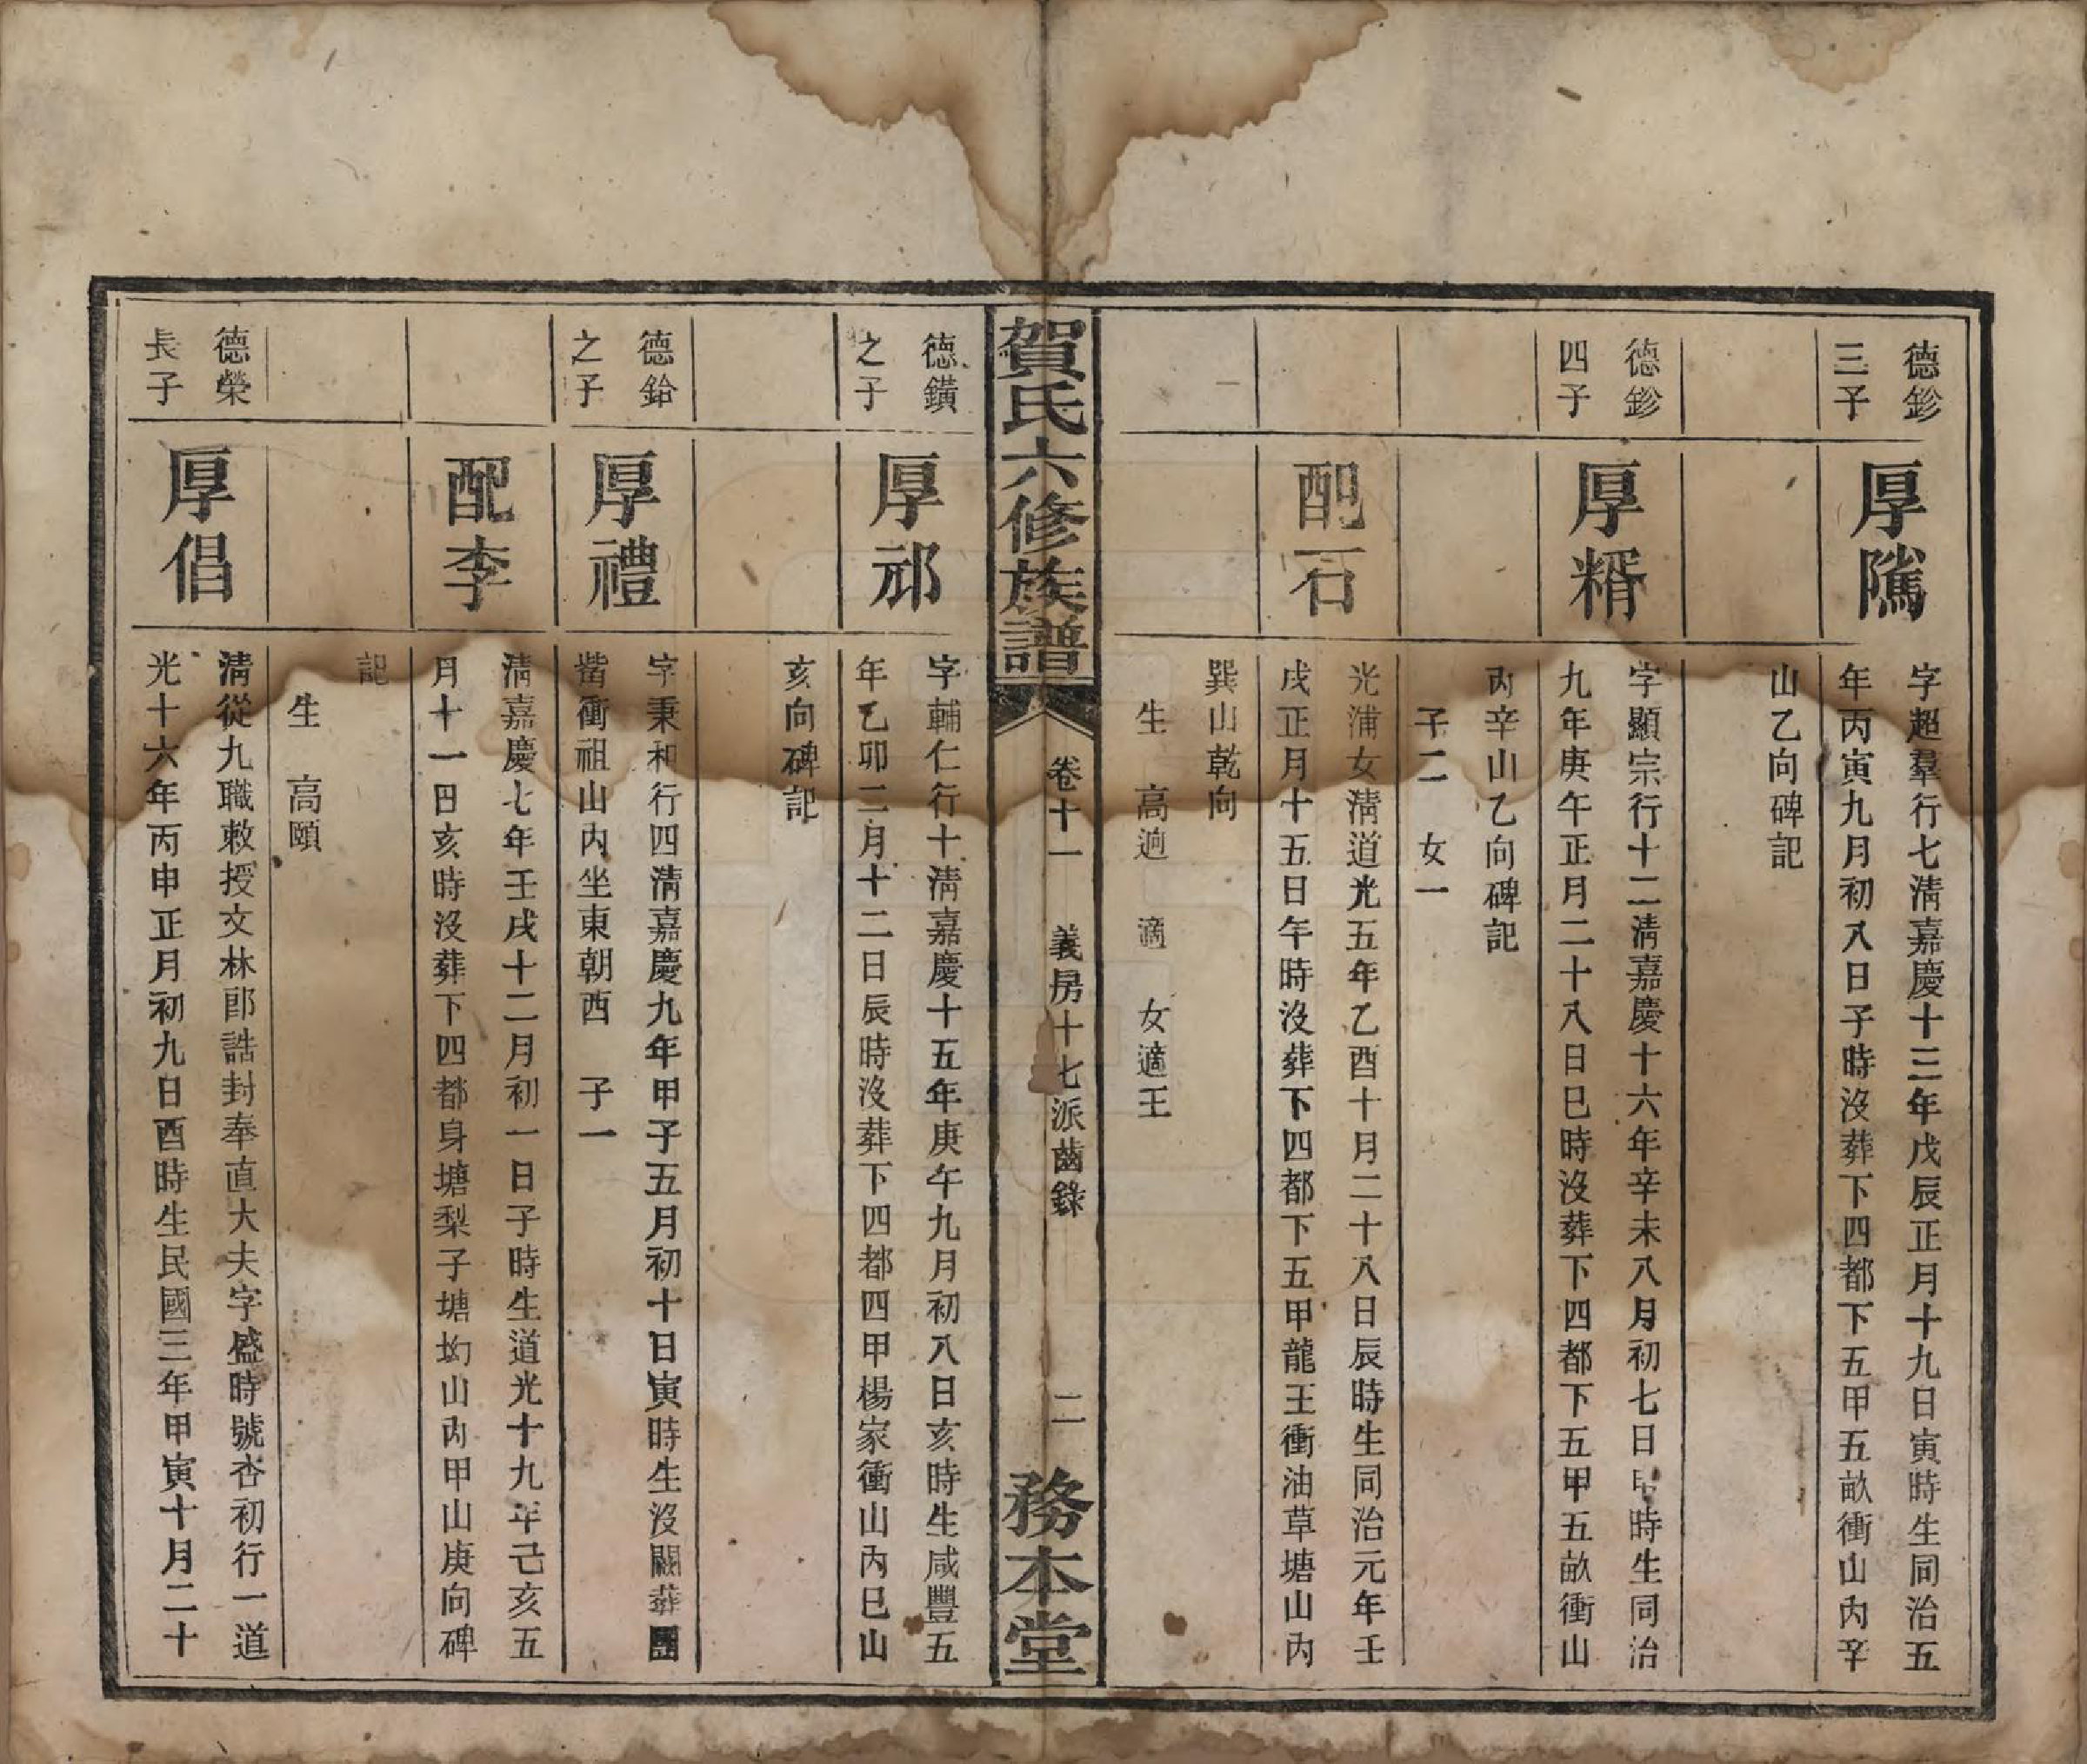 德鉁
三子
厚隲
字超羣行七淸嘉慶十三年戊辰正月十九日寅時生同治五
年丙寅九月初八日子時沒葬下四都下五甲五畝衝山內辛
山乙向碑記
德鉁
四子
厚糈
字顯宗行十二淸嘉慶十六年辛未八月初七日申時生同治
九年庚午正月二十八日巳時沒葬下四都下五甲五畝衝山
內辛山乙向碑記
子二 女一
配石
光浦女淸道光五年乙酉十月二十八日辰時生同治元年壬
戌正月十五日午時沒葬下四都下五甲龍王衝油草塘山內
巽山乾向
生 高逈 適 女適王
賀氏六修族譜
卷十一 義房十七派齒錄
二
務本堂
德鐄
之子
厚祁
字輔仁行十淸嘉慶十五年庚午九月初八日亥時生咸豐五
年乙卯二月十二日辰時沒葬下四都四甲楊家衝山內巳山
亥向碑記
德鈶
之子
厚禮
字秉和行四淸嘉慶九年甲子五月初十日寅時生沒闕葬團
衝祖山內坐東朝西 子一
配李
淸嘉慶七年壬戌十二月初一日子時生道光十九年己亥五
月十一日亥時沒葬下四都身塘梨子塘㘭山內甲山庚向碑
記
生 高頤
德榮
長子
厚倡
淸從九職敕授文林郎誥封奉直大夫字盛時號杏初行一道
光十六年丙申正月初九日酉時生民國三年甲寅十月二十